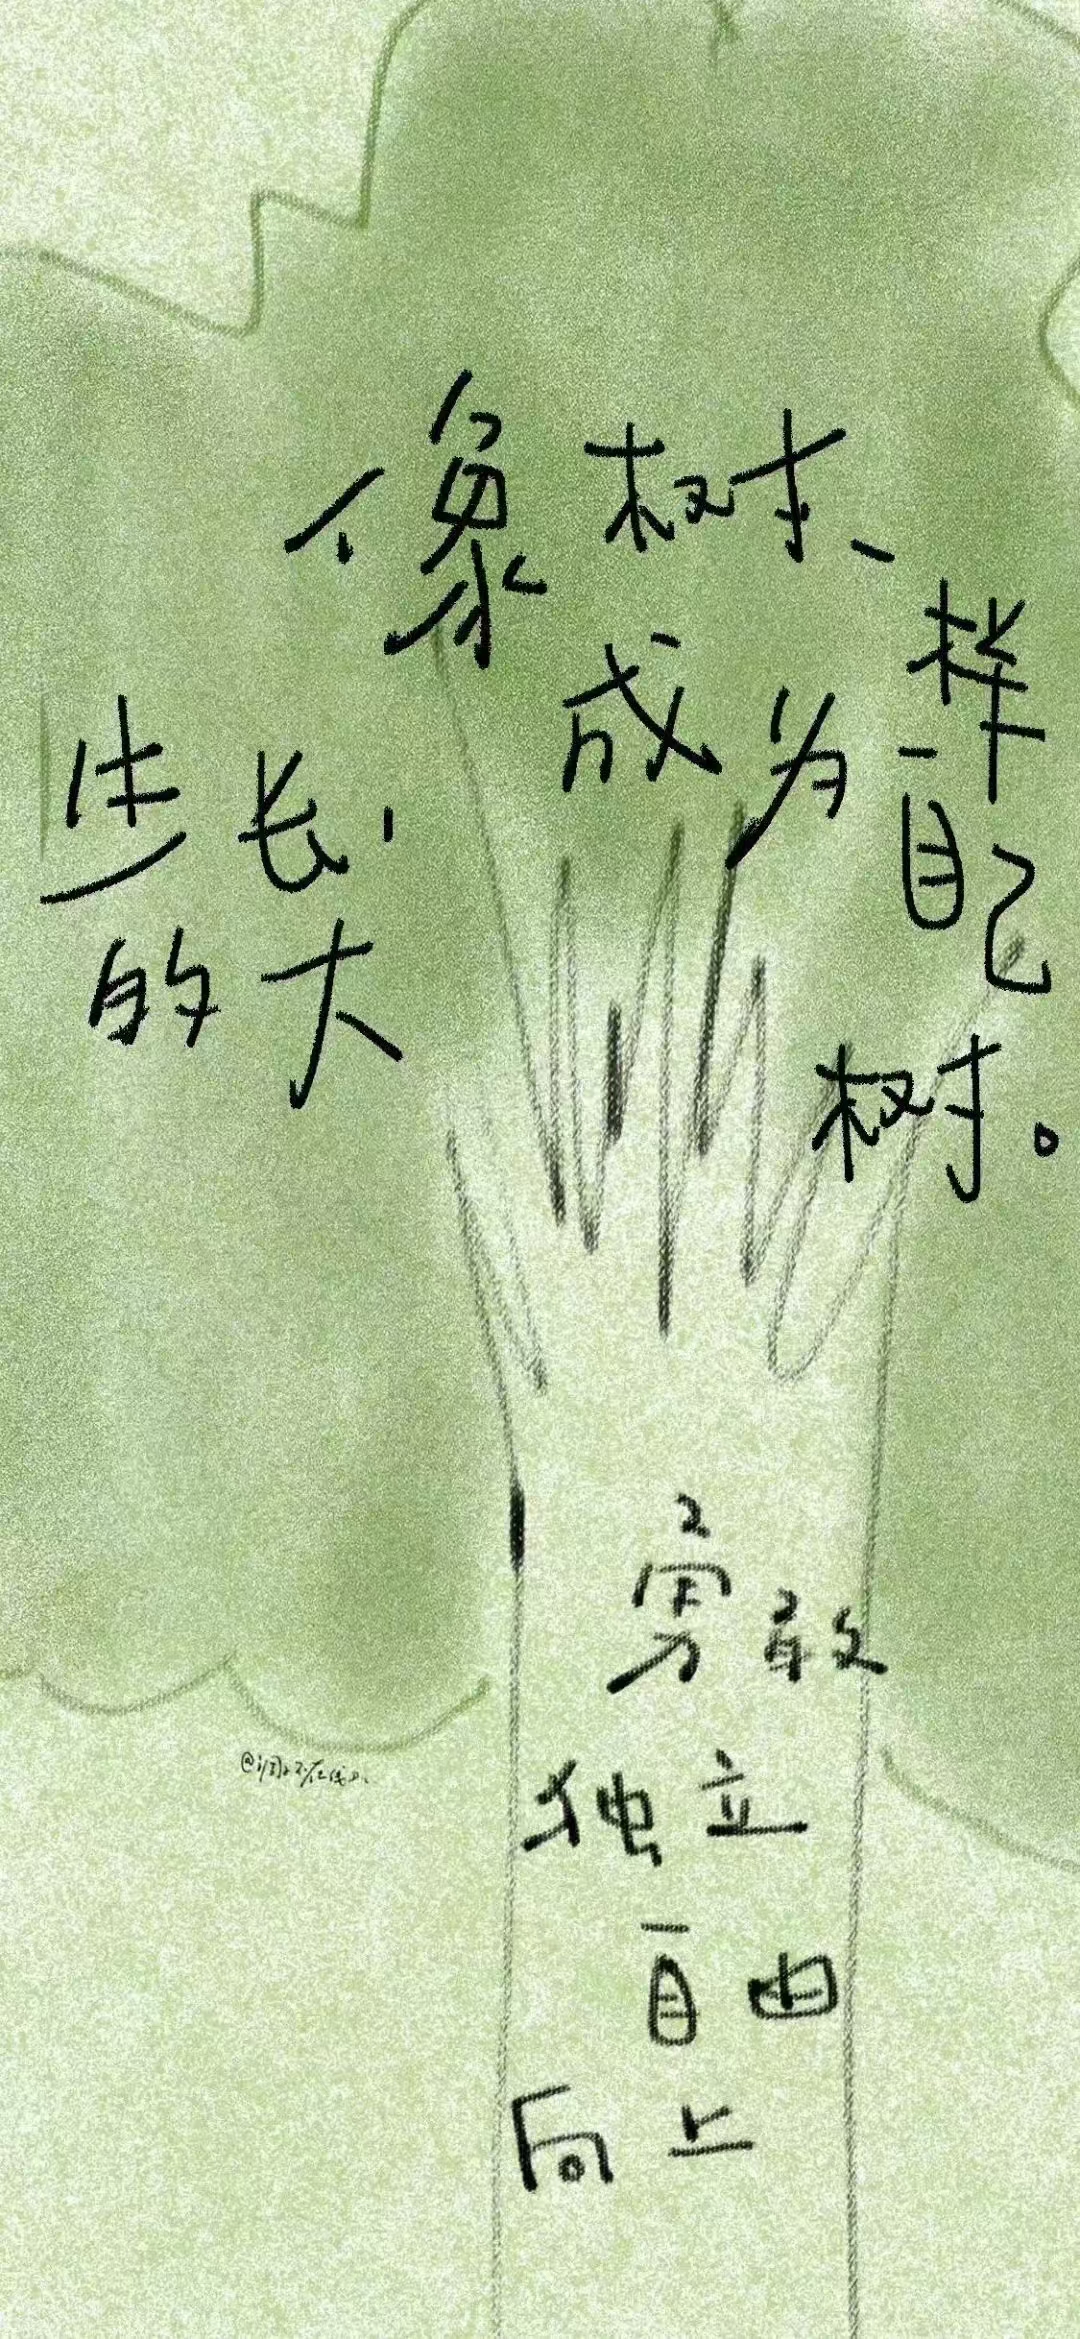 像树一样
生长,成为自己
的大树。
勇敢
独立
自由
向上